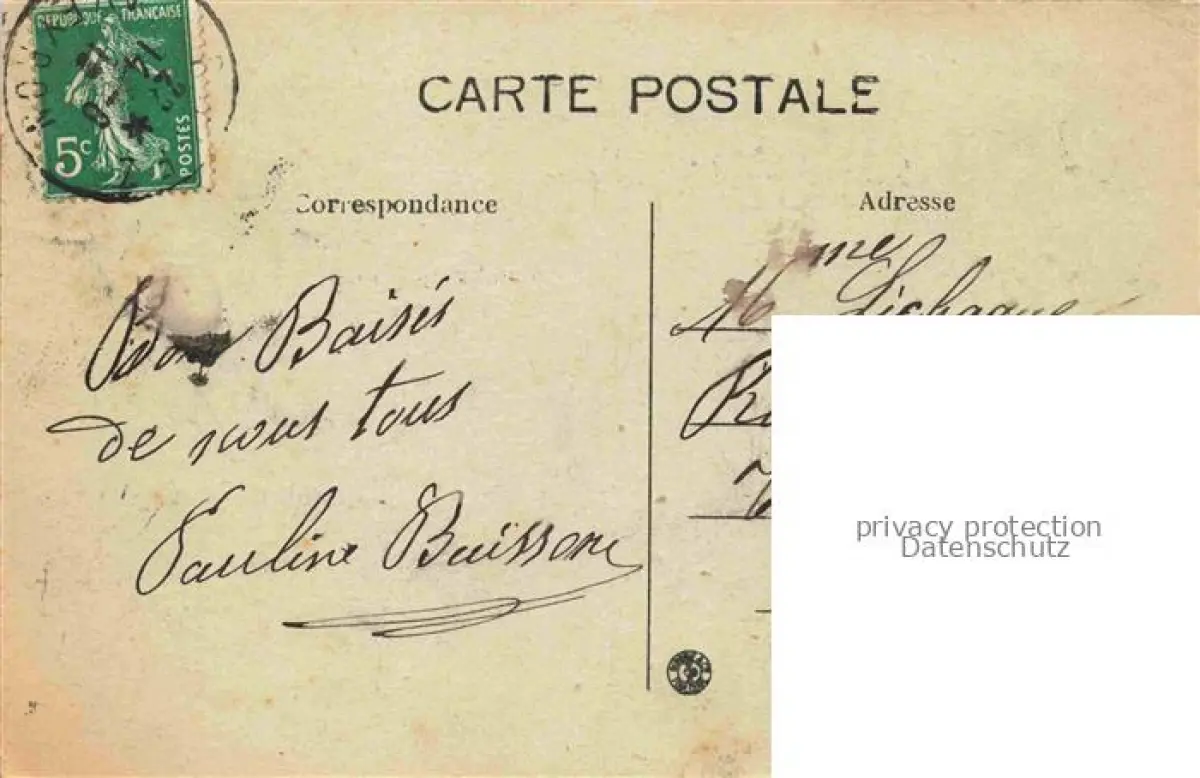 REPUBLIQUE FRANÇAISE
5c
POSTES
CARTE POSTALE
Correspondance
Adresse
Bons Baisés
de nous tous
Pauline Buisson
Mme
privacy protection
Datenschutz